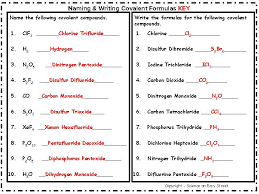 Naming & Writing Covalent Formulas KEY
Name the following covalent compounds.
1. ClF₃ Chlorine Trifluride
2. H₂ Hydrogen
3. N₂O₅ Dinitrogen Pentoxide
4. S₂F₂ Disulfur Difluoride
5. CO₂ Carbon Dioxide
6. S₂O₃ Disulfur Trioxide
7. XeF₆ Xenon Hexafluoride
8. P₂O₅
9. Diphosphorus Pentoxide
10. Dinitrogen Monoxide
Write the formulas for the following covalent compounds.
1. Chlorine Cl₂
2. Disulfur Dibromide S₂Br₂
3. Dinitrogen Trioxide N₂O₃
4. Carbon Dioxide CO₂
5. Carbon Monoxide CO
6. Carbon Tetrachloride CCl₄
7. Phosphorus Trihydride PH₃
8. Dichlorine Heptoxide Cl₂O₇
9. Nitrogen Trihydride NH₃
10. Diiodine Trifluoride
Copyright - Science on Easy Street